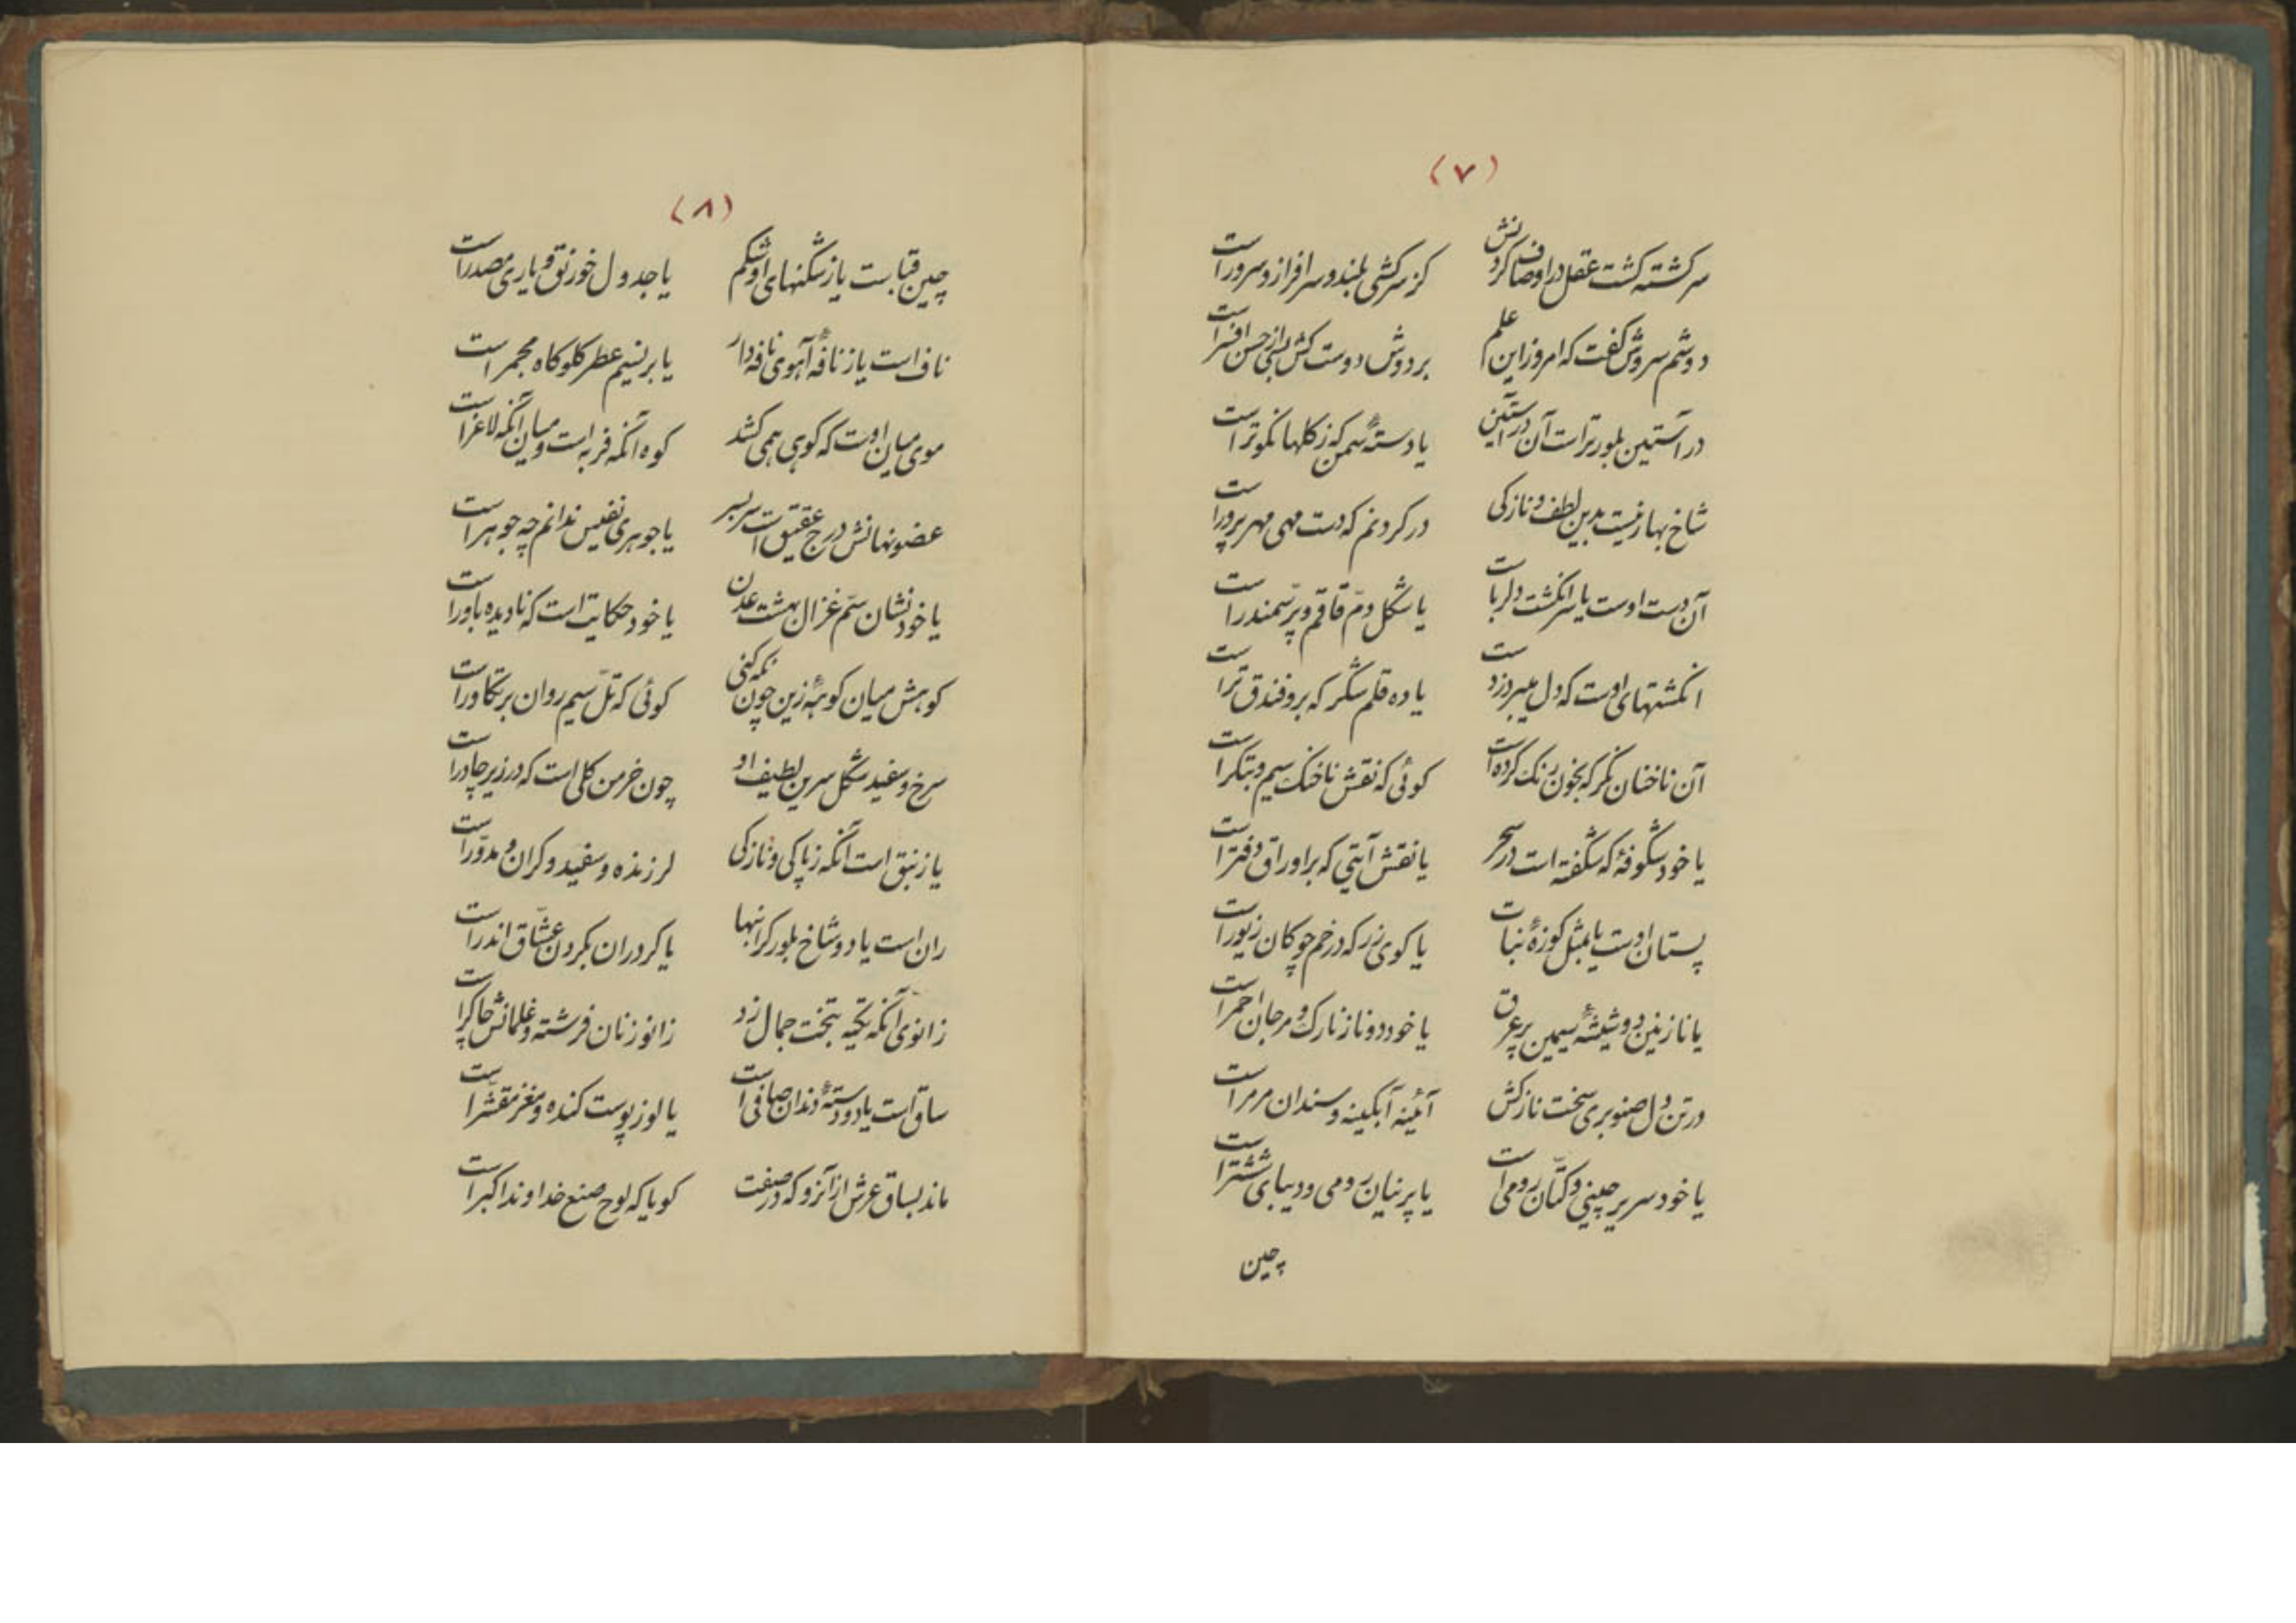 (۷)
سرکشته کشت عقل در اوصاف کردنش کز سرکشی بلند و سرافراز و سرور است
دوشم سروش کفت که امروز این علم بر دوش دوست کش بسی از حسن افسر است
در آستین بلور تر است آن در آستین یا دستهٔ سمن که ز کلها نکوتر است
شاخ بهار نیست بدین لطف و نازکی در کردنم که دست مهی مهرپرور است
آن دست اوست یا سر انکشت دلربا است یا شکل دمّ قاقم و پر سمندر است
انکشتهای اوست که دل میبرد ز دست یا ده قلم شکر که برو فندق تر است
آن ناخنان نکر که بخون رنک کرده است کوئی که نقش ناخنک سیم و بتکر است
یا خود شکوفهٔ که شکفته است در سحر یا نقش آیتی که بر اوراق دفتر است
پستان اوست یا بمثل کوزهٔ نبات یا کوی زر که در خم چوکان زیور است
یا نازنین دو شیشهٔ سیمین پر عرق یا خود دو نار نارک و مرجان احمر است
در تن دل صنوبری سخت نازکش آئینه آبکینه و سندان مرمر است
یا خود سریر چینی و کتّان رومی است یا پرنیان رومی و دیبای ششتر است
چین
(۸)
چین قباست یا ز شکنهای او شکم یا جدول خورنق و یاری مصدر است
ناف است یا ز نافهٔ آهوی نافه دار یا بر نسیم عطر کلوکاه مجمر است
موی میان اوست که کوهی همی کشد کوه آنکه فربه است و میان آنکه لاغر است
عضو نهانش درج عقیق است سر بسر یا جوهری نفیس ندانم چه جوهر است
یا خود نشان سمّ غزال بهشت عدن یا خود حکایت است که نادیده باور است
کوهش میان کوههٔ زین چون نکه کنی کوئی که تلّ سیم روان بر تکاور است
سرخ و سفید شکل سرین لطیف او چون خرمن کلی است که در زیر چادر است
یا زنبق است آنکه ز پاکی و نازکی لرزنده و سفید و کران و مدوّر است
ران است یا دو شاخ بلور کرانبها یا کرد ران بکردن عشّاق اندر است
زانوی آنکه تکیه بتخت جمال زد زانو زنان فرشته و غلمانش چاکر است
ساق است یا دو دستهٔ دندان صافی است یا لوز پوست کنده و مغز مقشّر است
ماند بساق عرش از آنرو که در صفت کویا که لوح صنع خداوند اکبر است